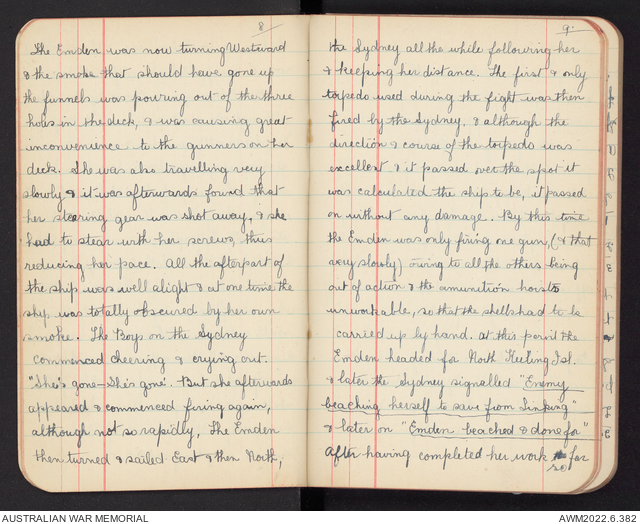 8
The Emden was now turning Westward
& the smoke that should have gone up
the funnels was pouring out of the three
holes in the deck, & was causing great
inconvenience to the gunners on her
deck. She was also travelling very
slowly & it was afterwards found that
her steering gear was shot away, & she
had to stear with her screws, thus
reducing her pace. All the afterpart of
the ship was well alight & at one time the
ship was totally obscured by her own
smoke. The Boys on the Sydney
commenced cheering & crying out.
"She's gone - She's gone". But she afterwards
appeared & commenced firing again,
although not so rapidly, The Emden
then turned & sailed East & then North,
9.
the Sydney all the while following her
& keeping her distance. The first & only
torpedo used during the fight was then
fired by the Sydney, & although the
direction & course of the torpedo was
excellent & it passed over the spot it
was calculated the ship to be, it passed
on without any damage. By this time
the Emden was only firing one gun, (& that
very slowly) owing to all the others being
out of action & the amunition hoists
unworkable, so that the shells had to be
carried up by hand. At this point the
Emden headed for North Keeling Isl.
& later the Sydney signalled "Enemy
beaching herself to save from Sinking"
& later on "Emden beached & done for"
After having completed her work for
so
AUSTRALIAN WAR MEMORIAL
AWM2022.6.382